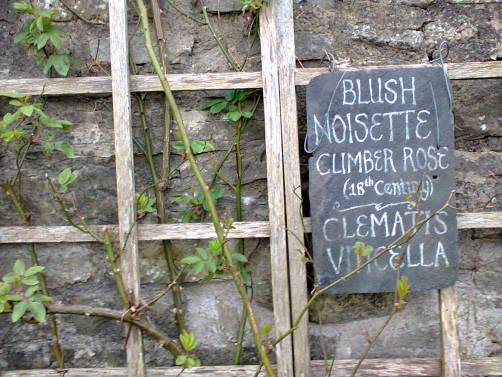 BLUSH
NOISETTE
CLIMBER ROSE
(18th Century)
CLEMATIS
VITICELLA